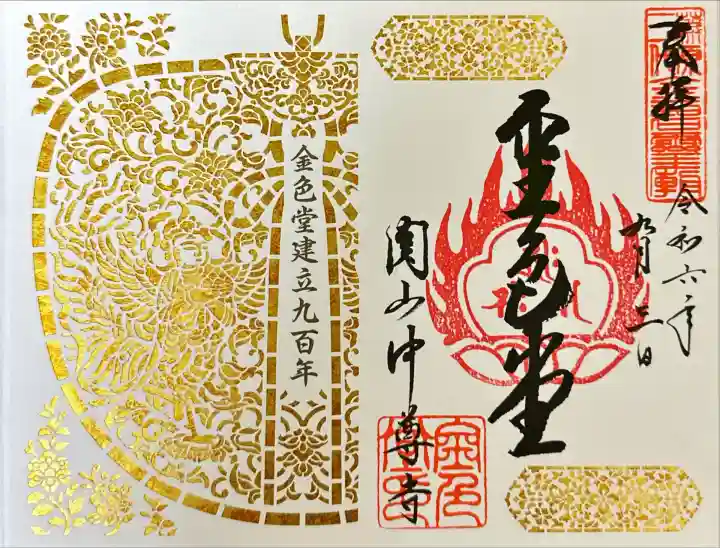 奉拝
令和六年
九月三日
金色堂
関山中尊寺
金色
金色堂建立九百年